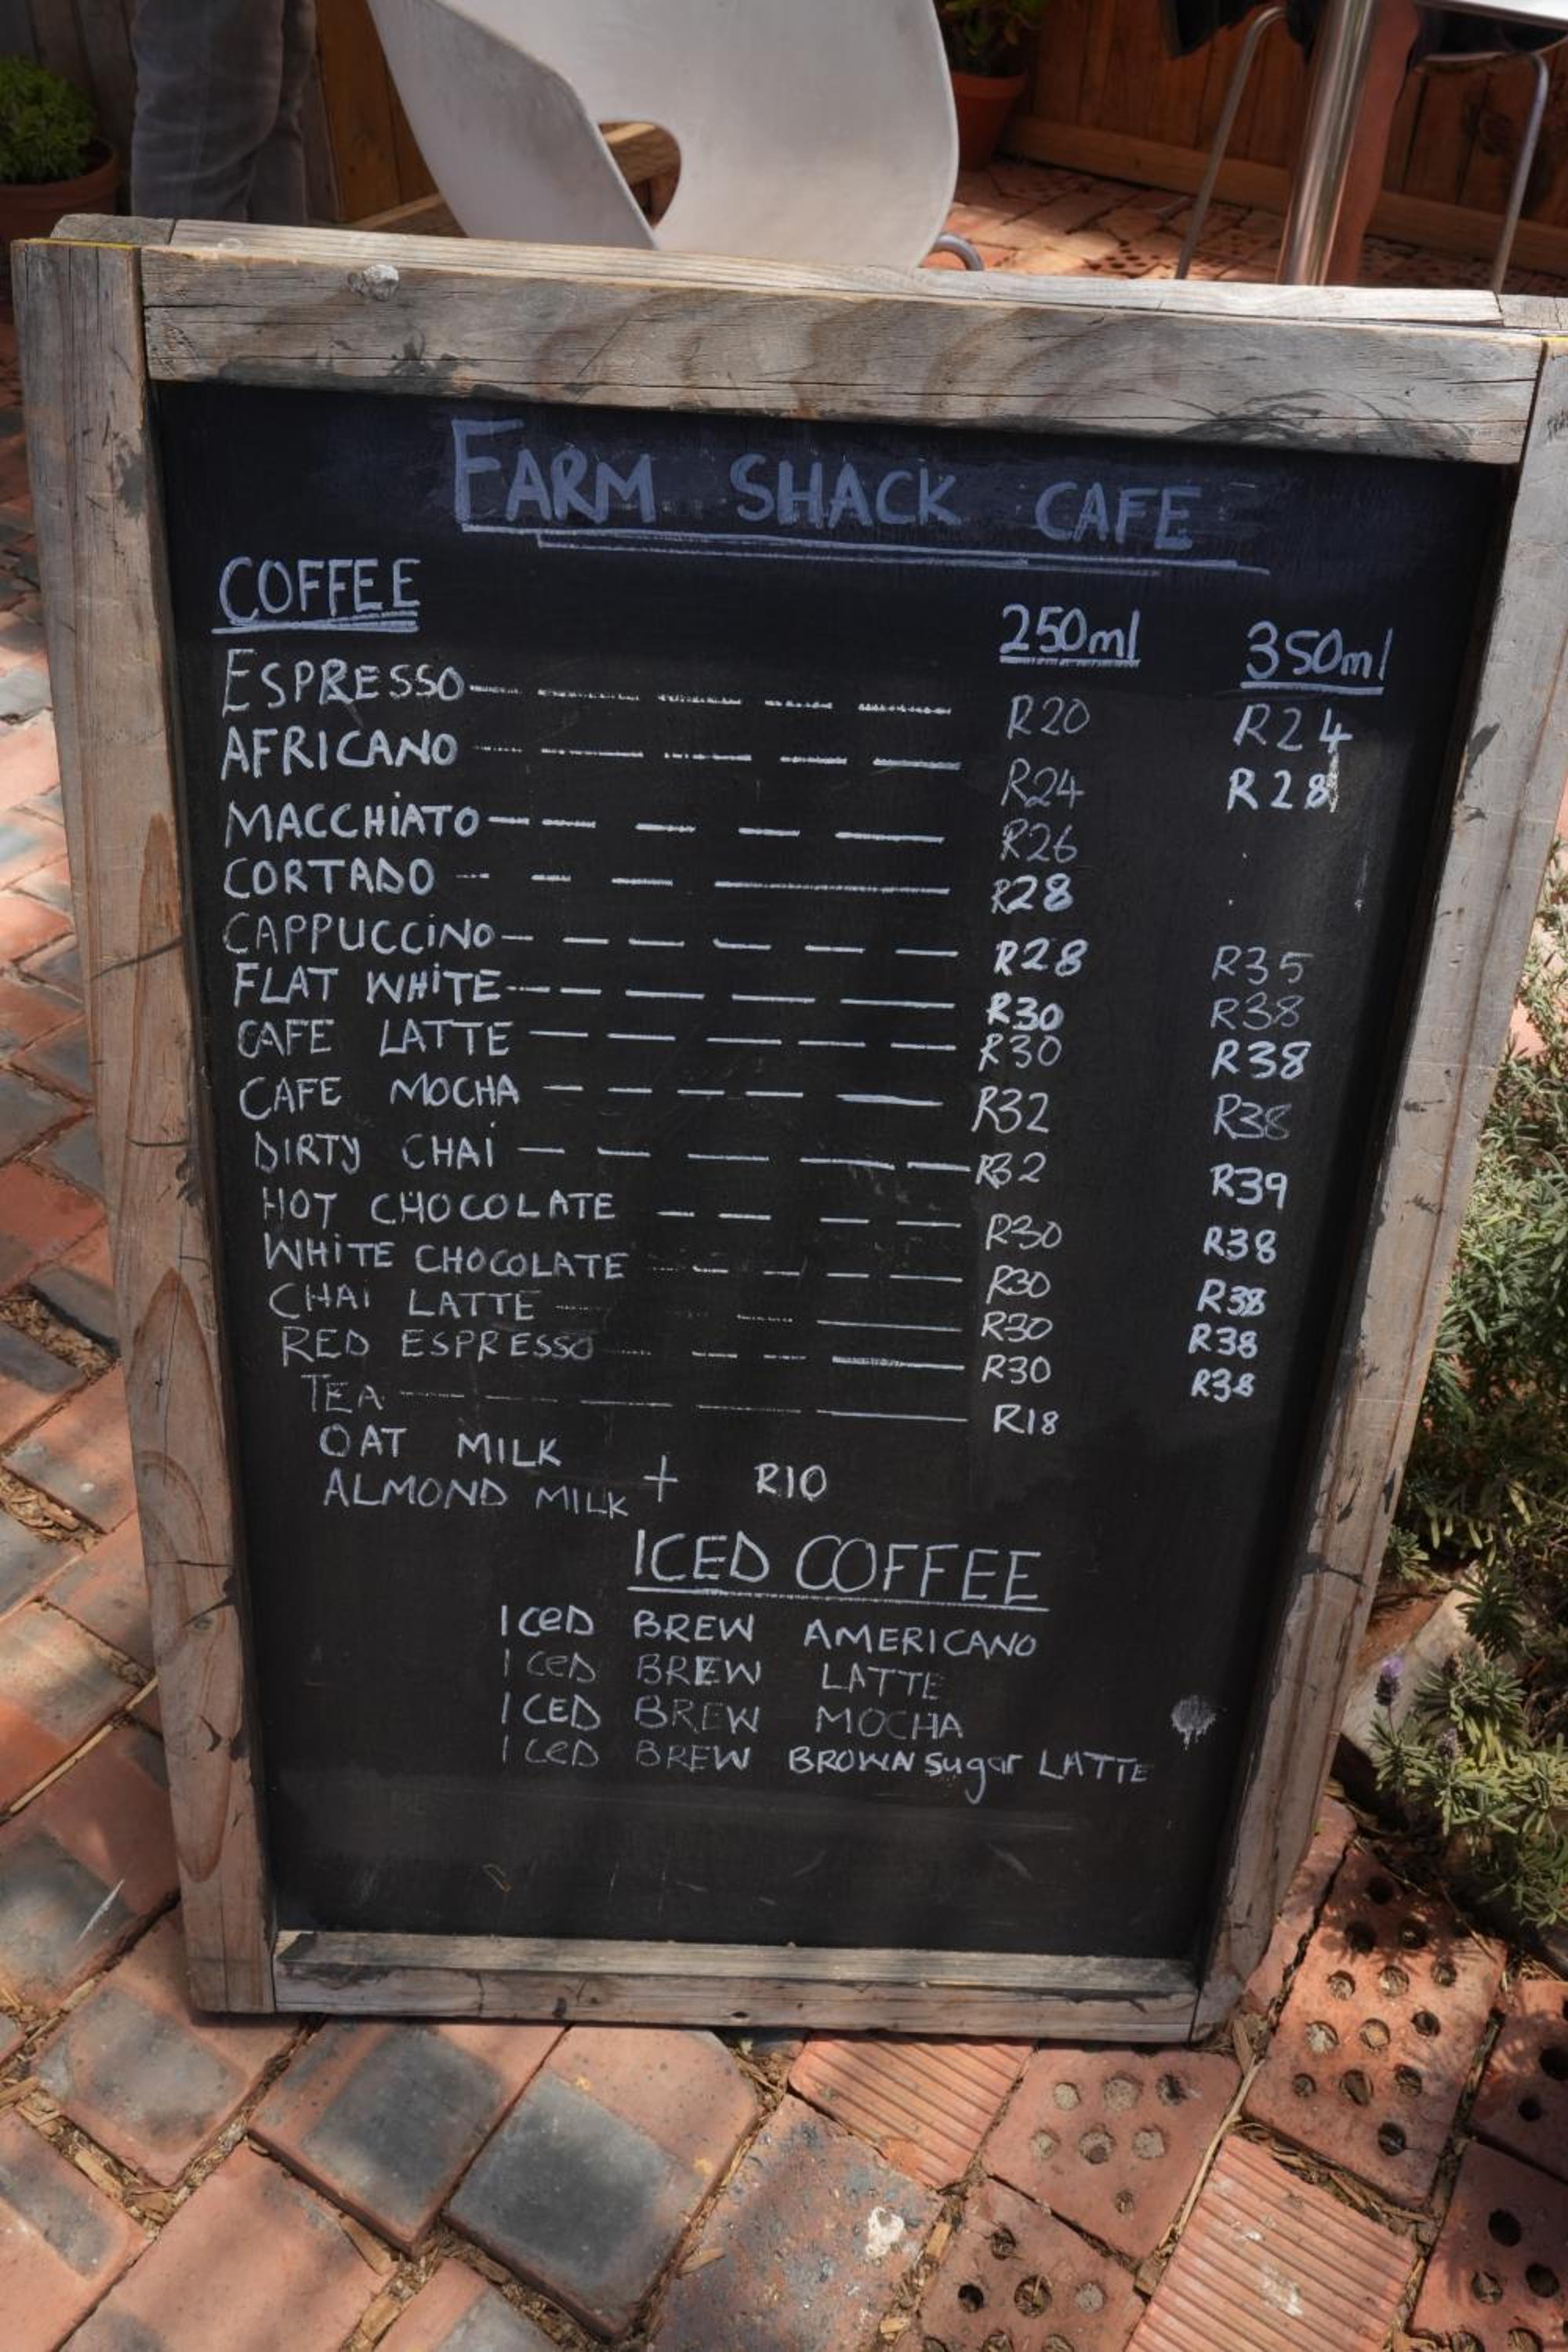 FARM SHACK CAFE
COFFEE 250ml 350ml
ESPRESSO R20 R24
AFRICANO R24 R28
MACCHiATO R26
CORTADO R28
CAPPUCCiNO R28 R35
FLAT WHiTE R30 R38
CAFE LATTE R30 R38
CAFE MOCHA R32 R38
DIRTY CHAi R32 R39
HOT CHOCOLATE R30 R38
WHiTE CHOCOLATE R30 R38
CHAi LATTE R30 R38
RED ESPRESSO R30 R38
TEA R18
OAT MILK
ALMOND MILK + R10
ICED COFFEE
ICeD BREW AMERICANO
ICeD BREW LATTE
ICED BREW MOCHA
ICeD BREW BROWN sugar LATTE